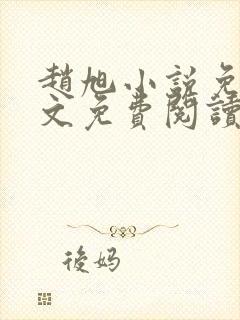 趙旭小説免
文免費閱讀
後妈